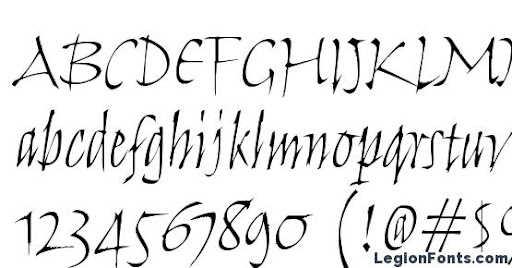 ABCDEFGHIJKLM
abcdefghijklmnopqrstuv
1234567890 (!@#$
LegionFonts.com/